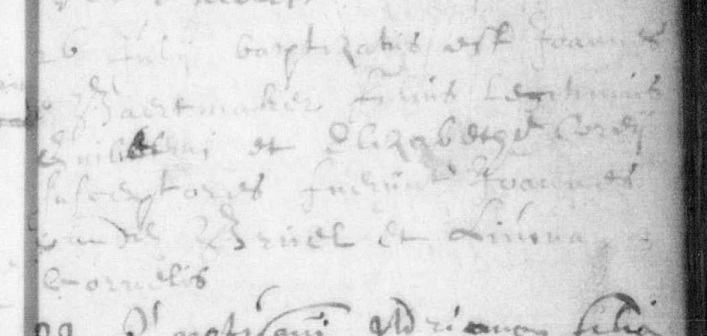 26 Julij baptizatus est Joannes
Baermaker filius legitimus
Guilielmi et Elizabethe Cordij
susceptores fuerunt Joannes
vanden Bruel et Livina
Cornelis
Adrianus filius